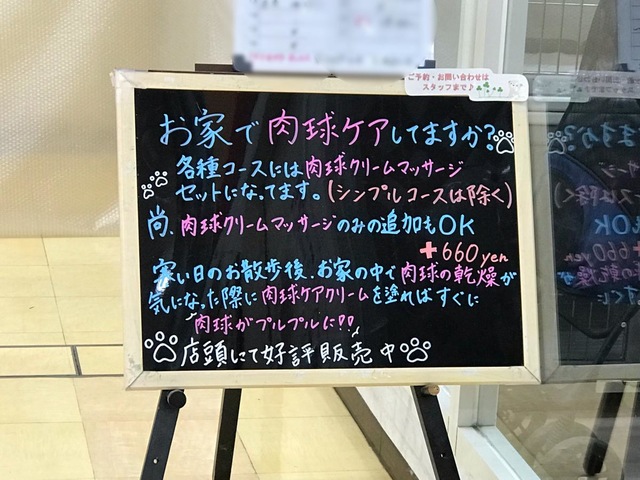 ご予約・お問い合わせは
スタッフまで♪
お家で肉球ケアしてますか?
各種コースには肉球クリームマッサージ
セットになってます。(シンプルコースは除く)
尚、肉球クリームマッサージのみの追加もOK
+660yen
寒い日のお散歩後、お家の中で肉球の乾燥が
気になった際に肉球ケアクリームを塗ればすぐに
肉球がプルプルに!!
店頭にて好評販売中